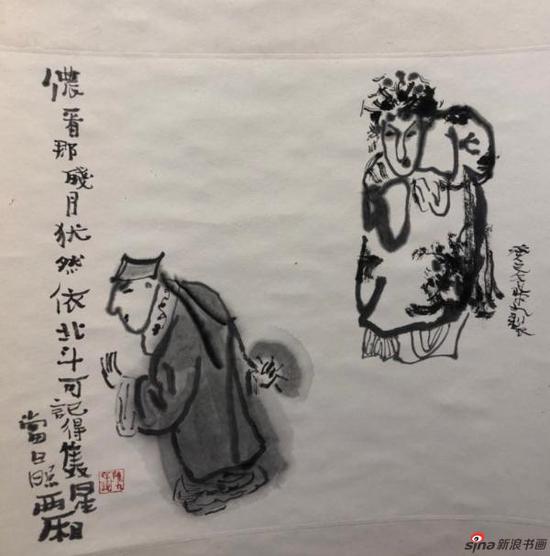 儂看那殘月犹然依北斗可記得隻星
當日照
两厢
癸巳
sina新浪书画